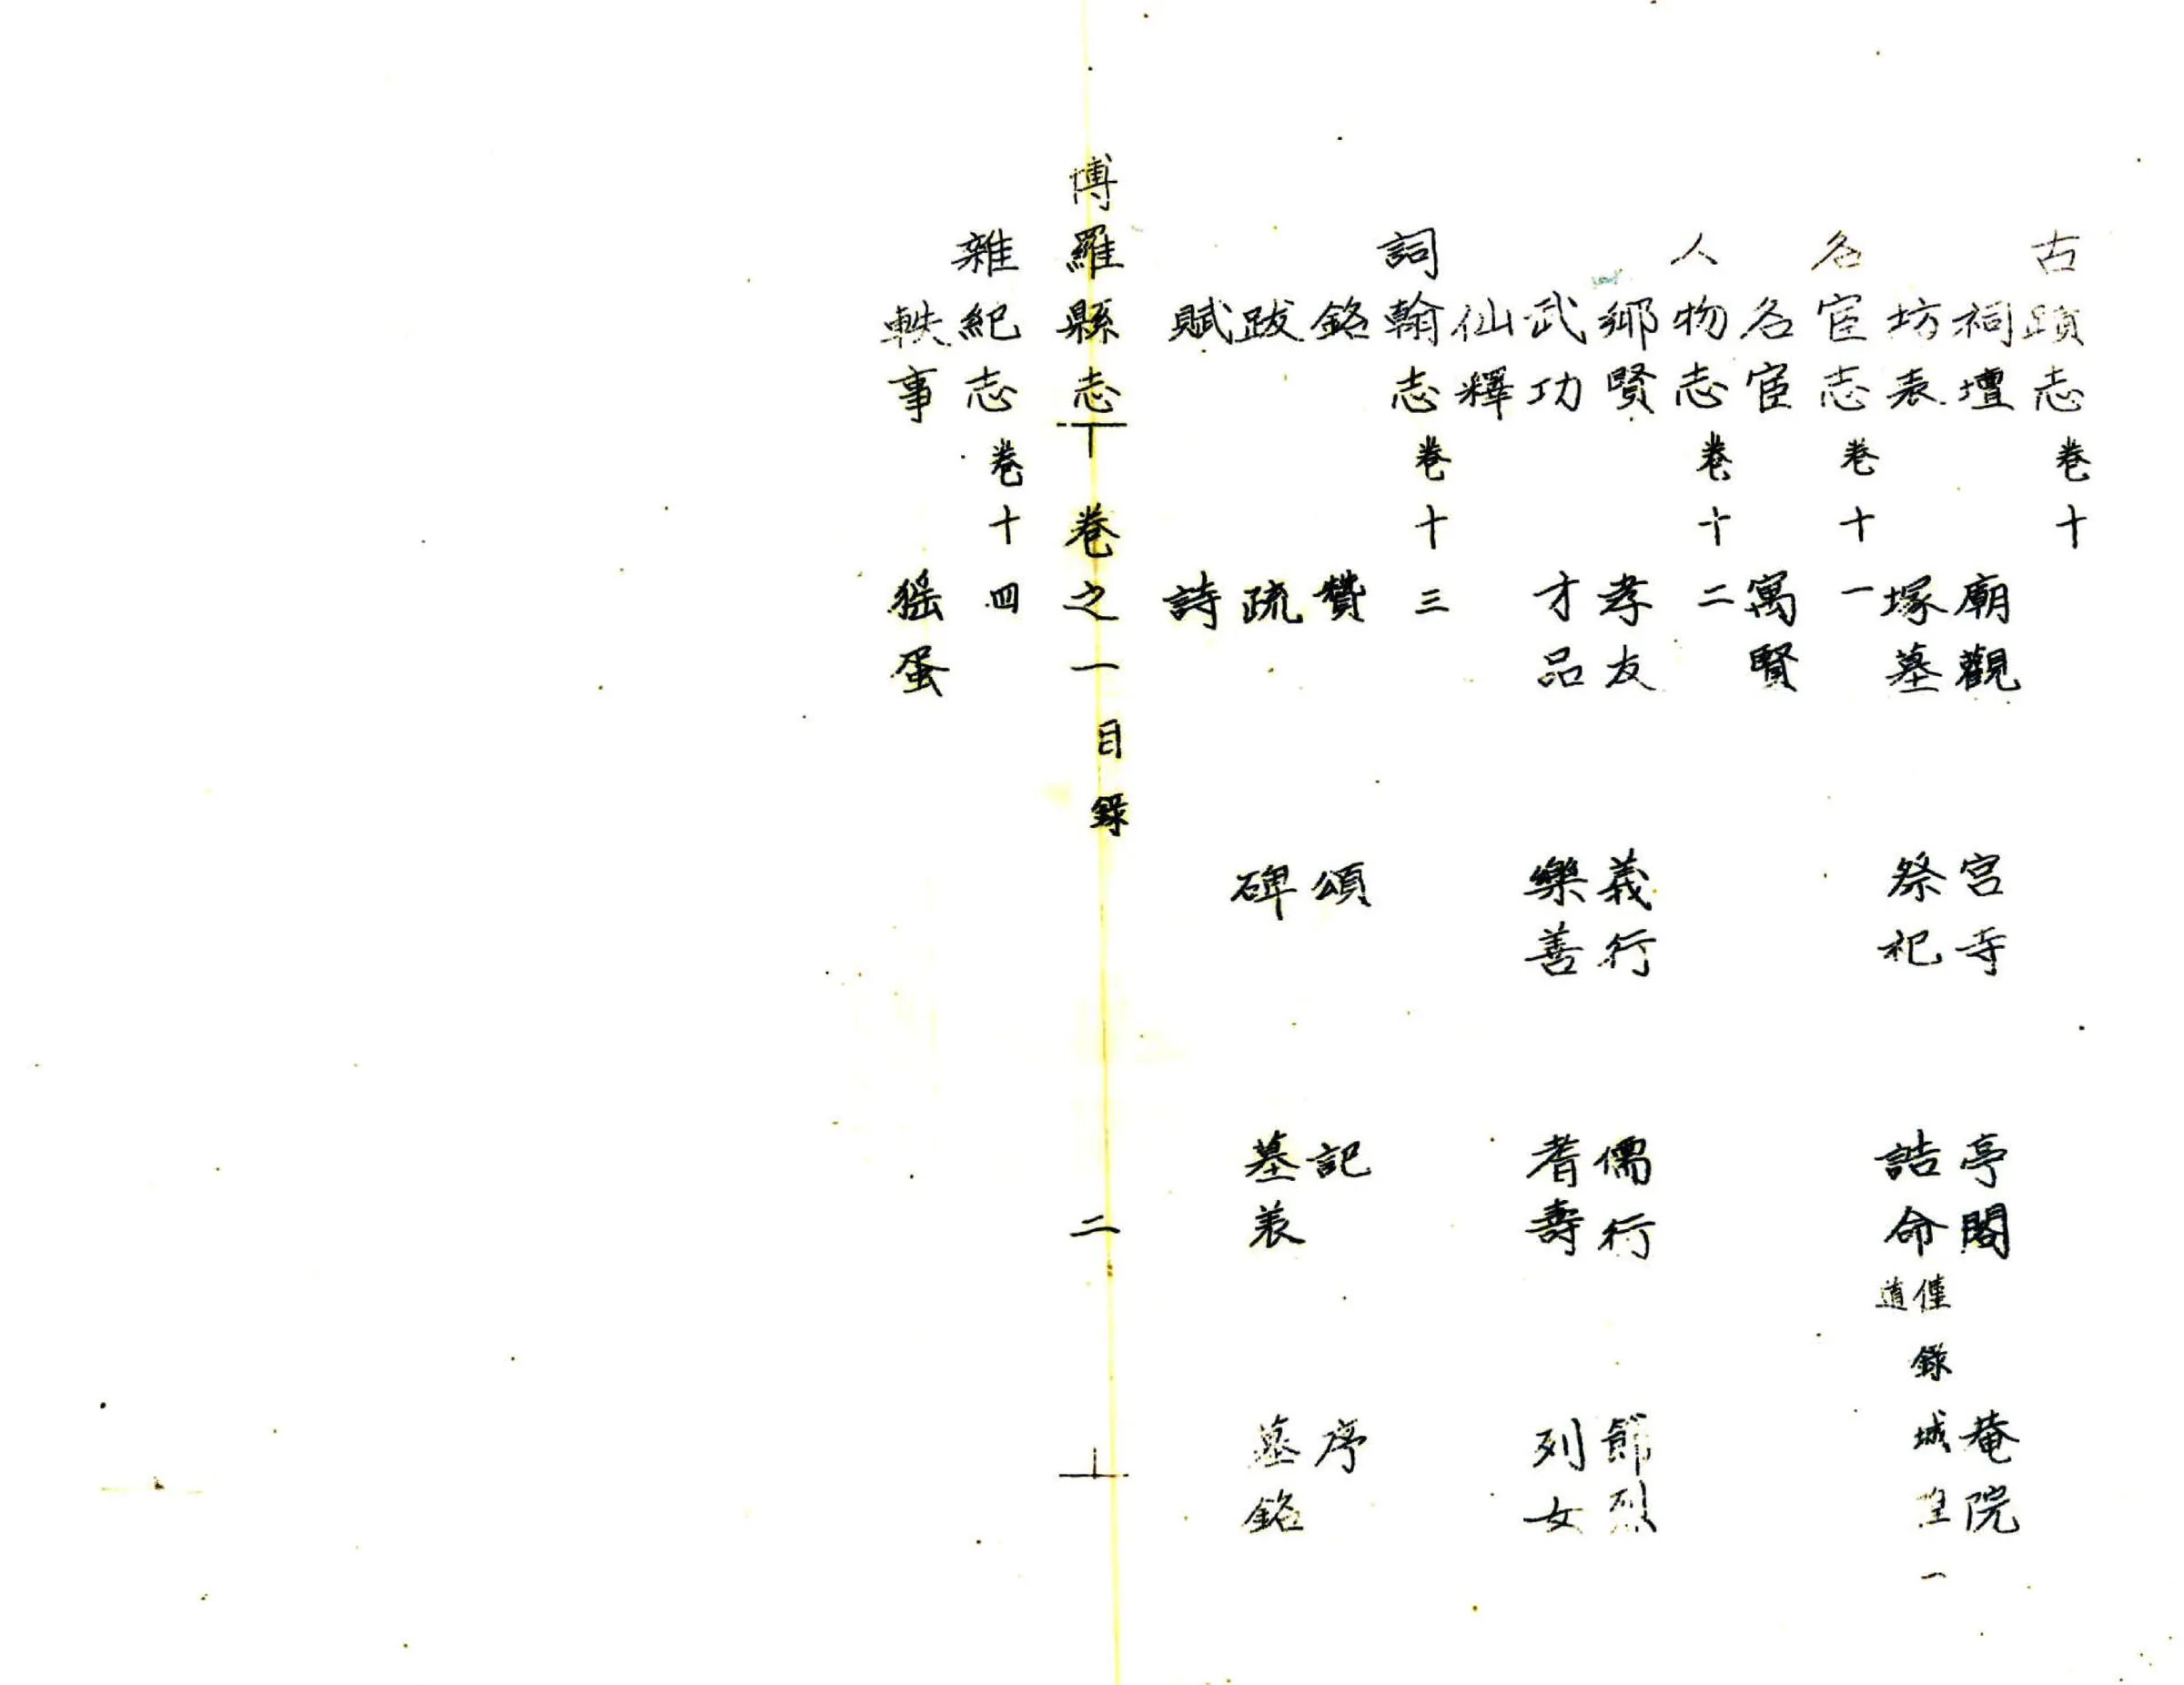 古蹟志卷十
祠壇 廟觀 宮寺 亭閣 菴院
坊表 塚墓 祭祀 誥命僅錄城隍一道
名宦志卷十一
名宦 寓賢
人物志卷十二
鄉賢 孝友 義行 儒行 節烈
武功 才品 樂善 耆壽 列女
仙釋
詞翰志卷十三
銘 贊 頌 記 序
跋 疏 碑 墓表 墓銘
賦 詩
博羅縣志 卷之一 目錄 二
雜紀志卷十四
軼事 猺蛋